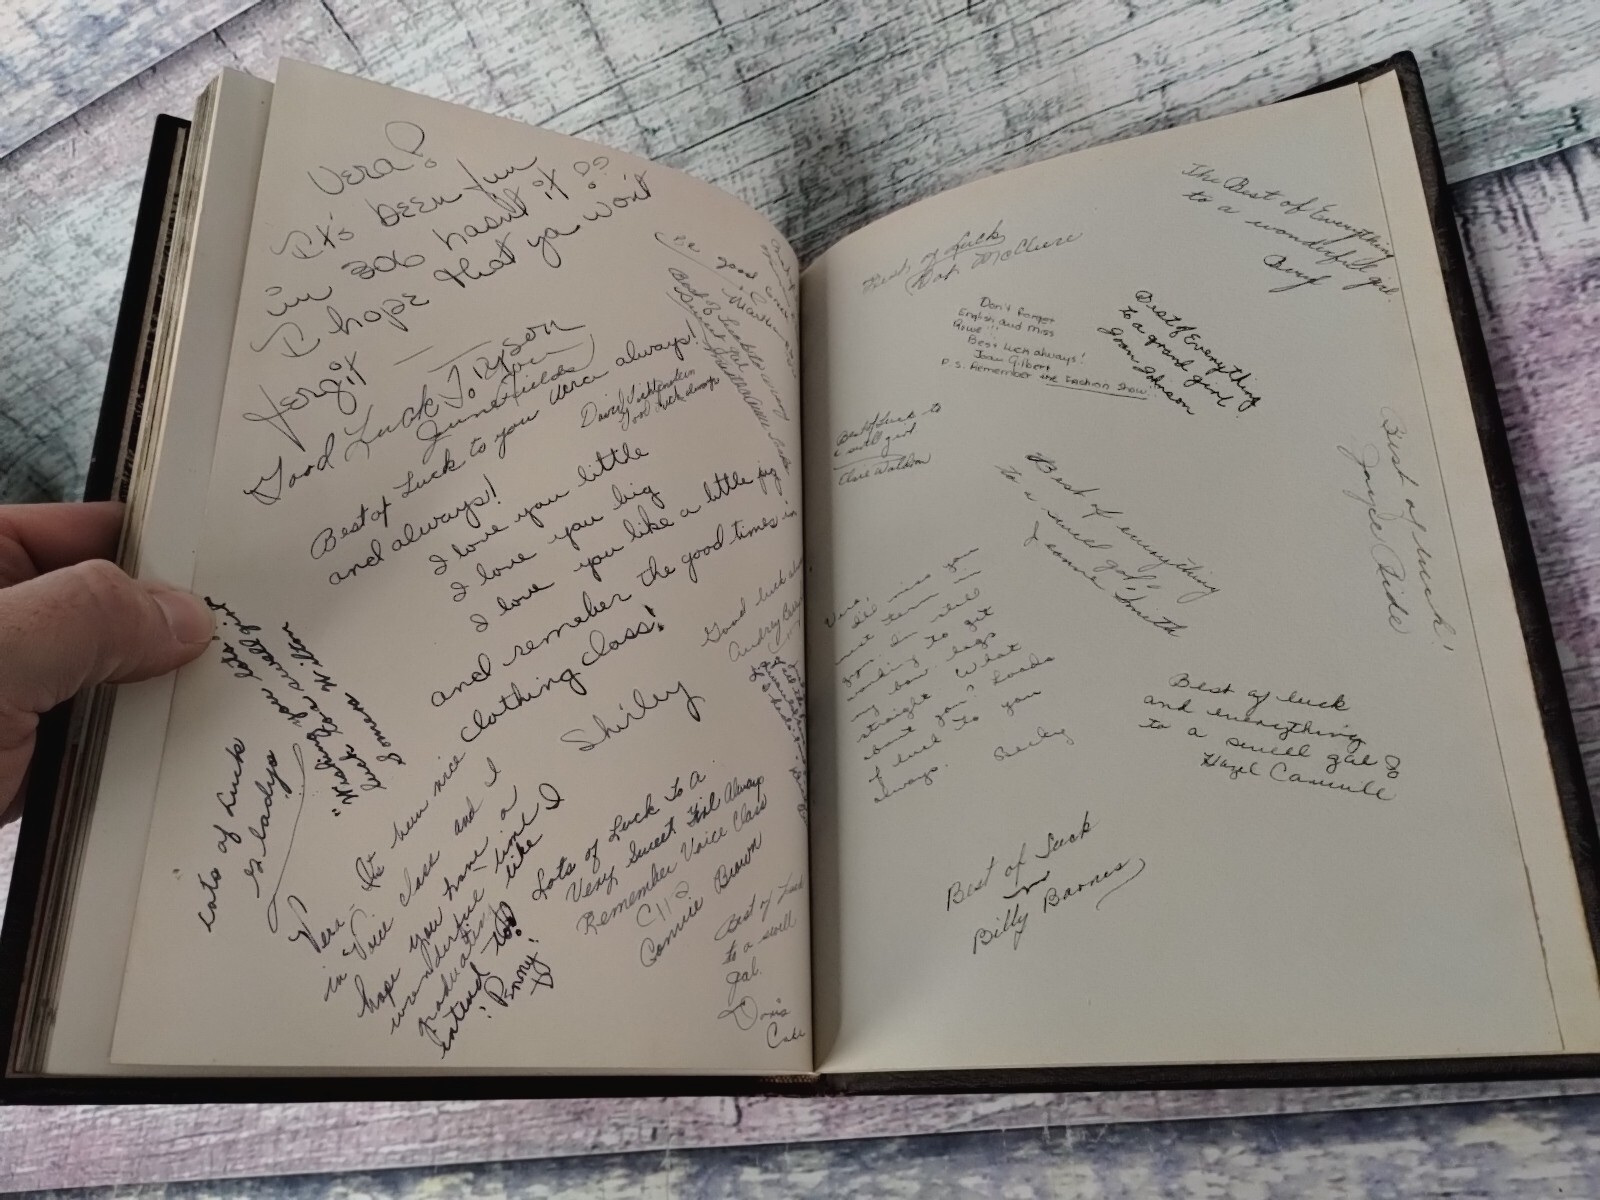 Vera!
It's been fun
in 306 hasn't it??
I hope that ya won't
forgit —
Good Luck To Tyson
June Fields
Best of Luck to you Vera always!
and always!
I love you little
I love you big
I love you like a little pig
and remeber the good times in
clothing class!
Shirley
David Lichtenstein
Good luck always
Be good
Best of Luck
Good luck
Audrey
"Wishing you lots of
luck to a swell girl"
Lots of Luck
Gladys
Vera - It's been nice
in Voice class and I
hope you have a
wonderful time
graduating like I
intend to!
Penny!
Lots of Luck To A
Very Sweet Girl Always
Remember Voice Class
C112
Connie Brown
Best of Luck
to a swell
gal.
Doris
Best of Luck
Dot. McClure
The Best of Everything
to a wonderful girl.
Don't forget
English and Miss
Rowe!!
Best luck always!
Joan Gilbert
P.S. Remember the Fashion Show!
Best of Everything
to a grand girl
Joan Johnson
Best of Luck to
a swell girl
Clare
Best of everything
to a swell gal,
Jeannie Smith
Best of luck!
Joyce
Vera,
I'll miss you
next term
gym. I'm still
working to get
my bow legs
straight. What
about you? Loads
of luck to you
always.
Becky
Best of luck
and everything
to a swell gal
Hazel
Best of Luck
Billy Barnes